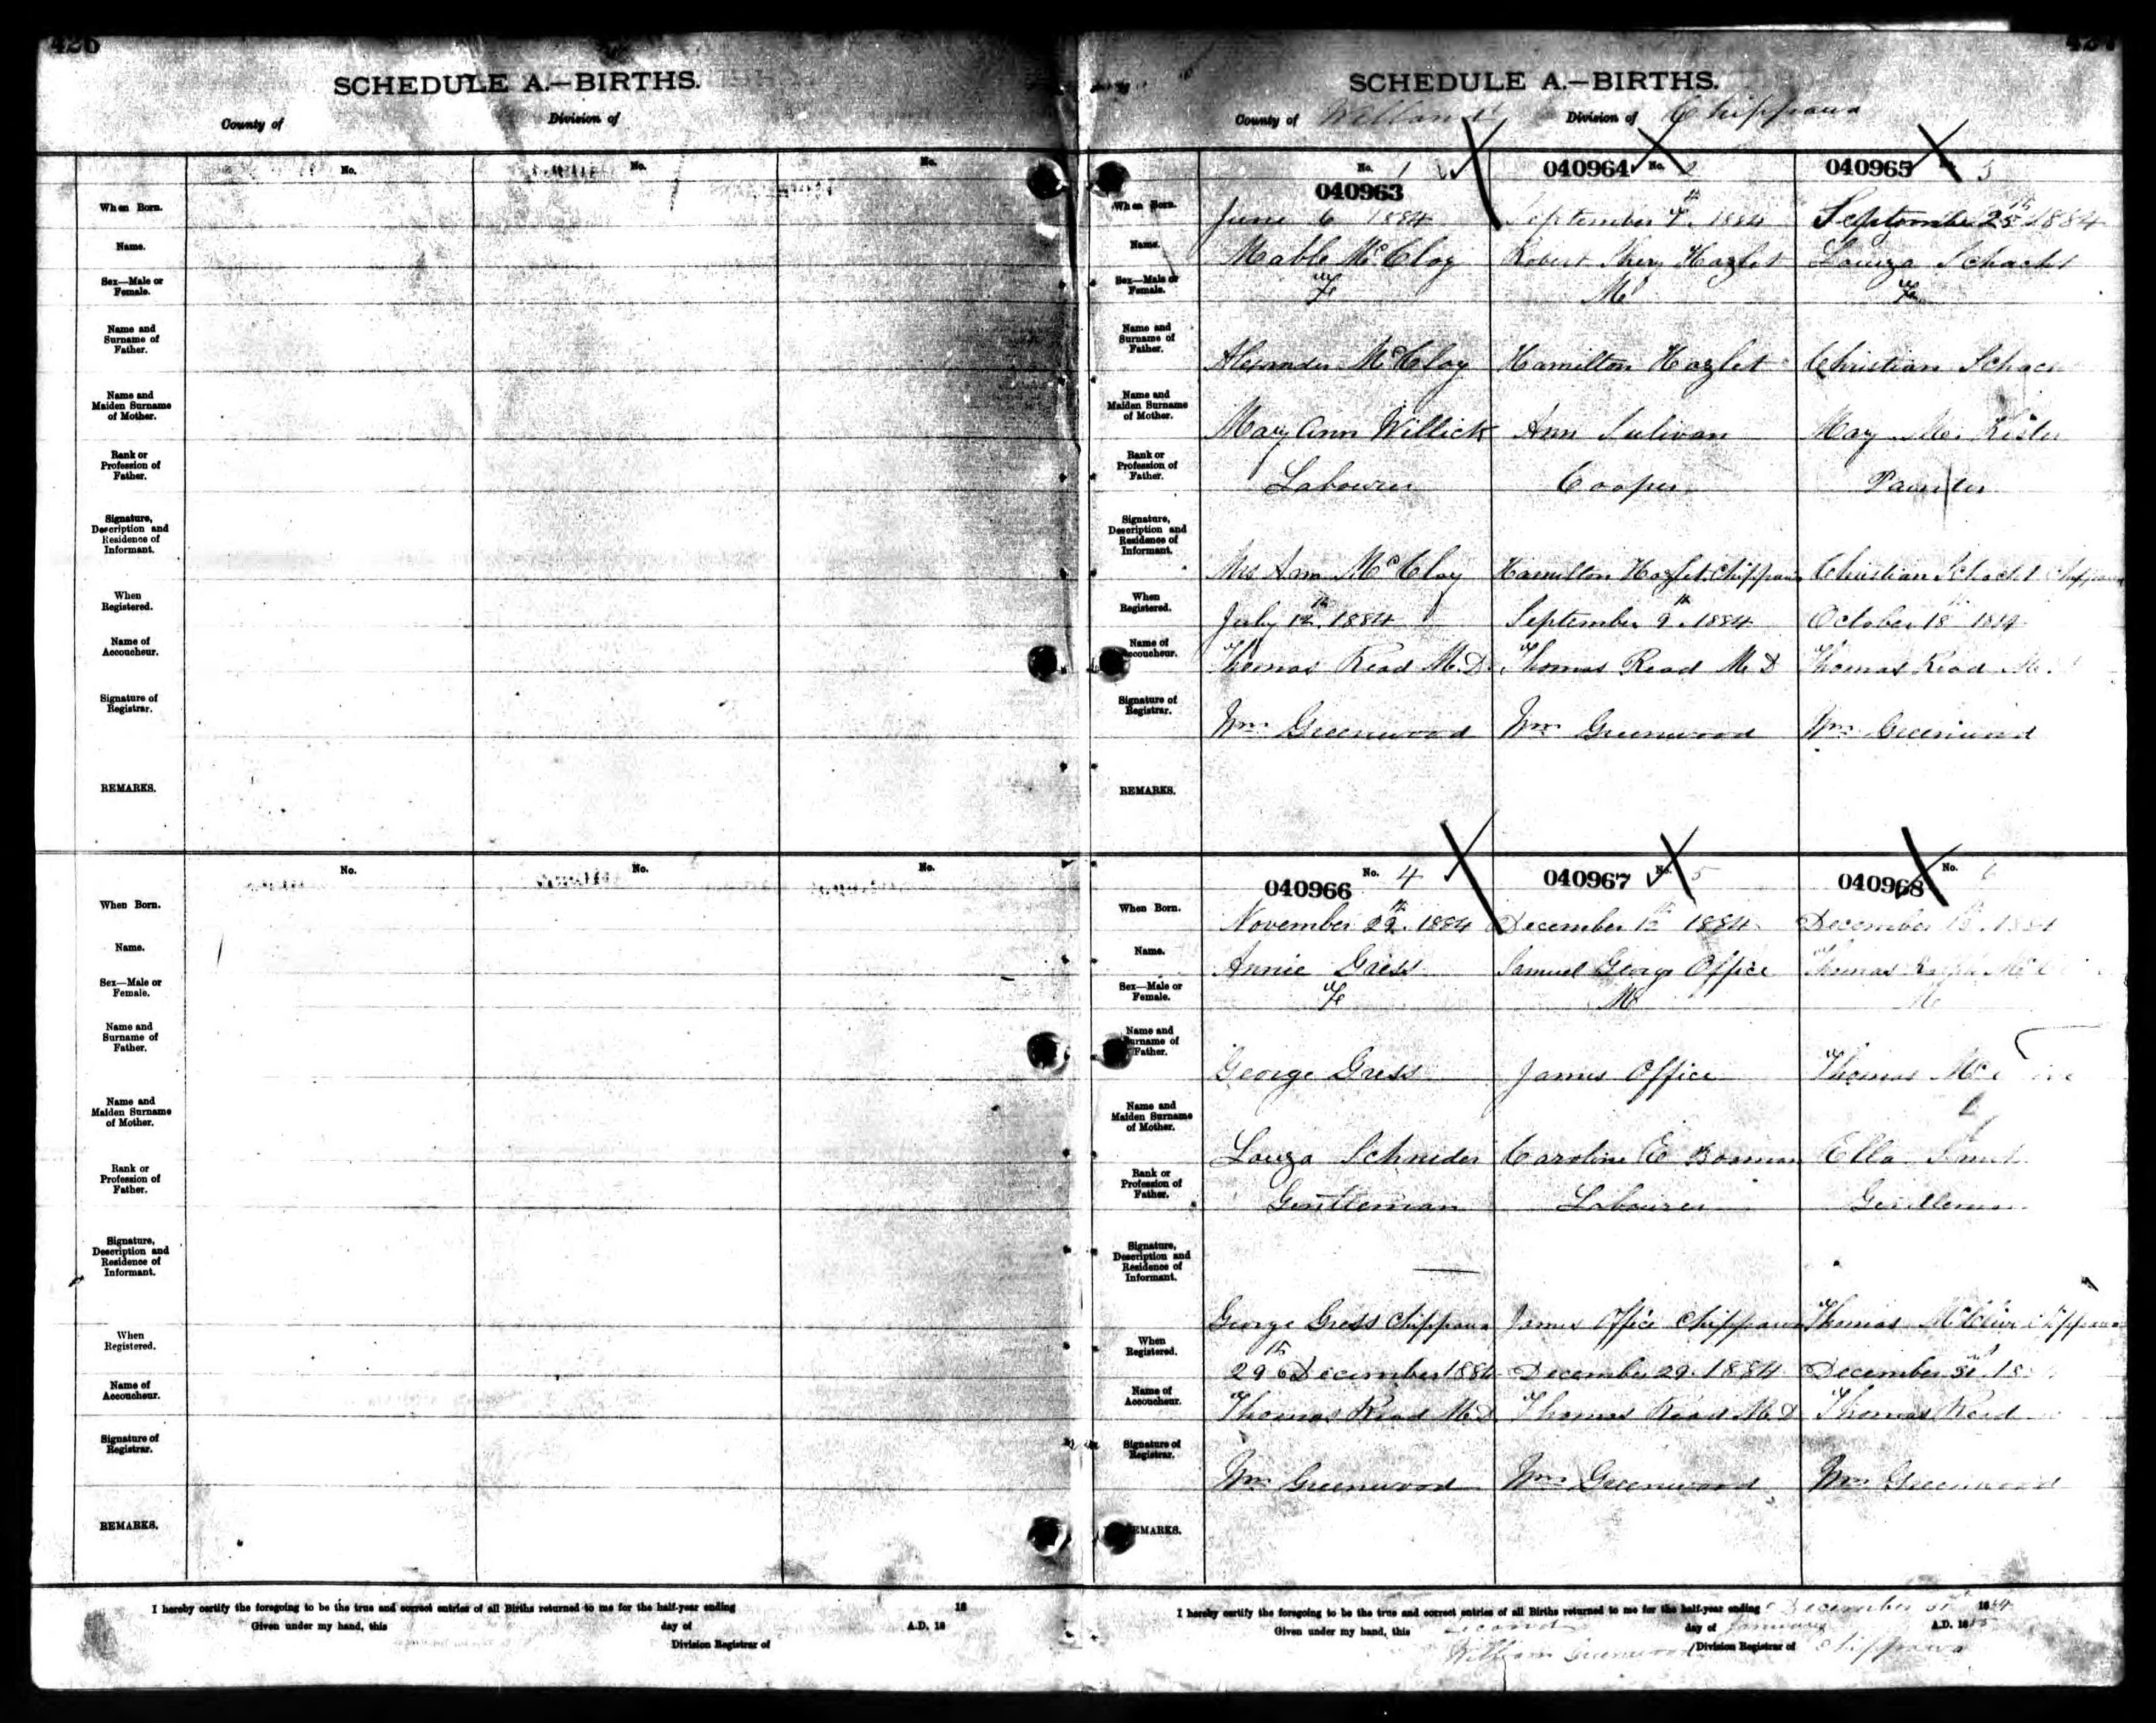 426
SCHEDULE A.—BIRTHS.
County of Division of
No. No. No.
When Born.
Name.
Sex—Male or
Female.
Name and
Surname of
Father.
Name and
Maiden Surname
of Mother.
Rank or
Profession of
Father.
Signature,
Description and
Residence of
Informant.
When
Registered.
Name of
Accoucheur.
Signature of
Registrar.
REMARKS.
No. No. No.
When Born.
Name.
Sex—Male or
Female.
Name and
Surname of
Father.
Name and
Maiden Surname
of Mother.
Rank or
Profession of
Father.
Signature,
Description and
Residence of
Informant.
When
Registered.
Name of
Accoucheur.
Signature of
Registrar.
REMARKS.
I hereby certify the foregoing to be the true and correct entries of all Births returned to me for the half-year ending 18
Given under my hand, this day of A.D. 18
Division Registrar of
SCHEDULE A.—BIRTHS.
County of Welland Division of Chippawa
No. 1 040964 No. 2 040965 3
040963
When Born. June 6 1884 September 1884 September 25th 1884
Name. Mable McCloy Robert Hazlet Louiza Schacht
Sex—Male or
Female. F M F
Name and
Surname of
Father. Alexander McCloy Hamilton Hazlet Christian
Name and
Maiden Surname
of Mother. Mary Ann Willick Ann Sulivan May
Rank or
Profession of
Father. Labourer Cooper Painter
Signature,
Description and
Residence of
Informant. Mrs Ann McCloy Hamilton Hazlet Chippawa Christian Schacht Chippawa
When
Registered. July 12th 1884 September 9th 1884 October 18th
Name of
Accoucheur. Thomas Read M.D. Thomas Read M.D Thomas Read M.
Signature of
Registrar. Wm Greenwood Wm Greenwood Wm Greenwood
REMARKS.
040966 No. 4 040967 No. 5 040968 No. 6
When Born. November 22. 1884 December 1884 December
Name. Annie Gress Samuel George Office Thomas
Sex—Male or
Female. F M M
Name and
Surname of
Father. George Gress James Office Thomas
Name and
Maiden Surname
of Mother. Louza Schneider Caroline E Ella
Rank or
Profession of
Father. Gentleman Labourer Gentleman
Signature,
Description and
Residence of
Informant. George Gress Chippawa James Office Chippawa Thomas Chippawa
When
Registered. 29th December 1884 December 29. 1884 December 18
Name of
Accoucheur. Thomas Read M.D Thomas Read M.D Thomas Read
Signature of
Registrar. Wm Greenwood Wm Greenwood Wm Greenwood
REMARKS.
I hereby certify the foregoing to be the true and correct entries of all Births returned to me for the half-year ending December 31st 1884
Given under my hand, this second day of January A.D. 1885
William Greenwood Division Registrar of Chippawa